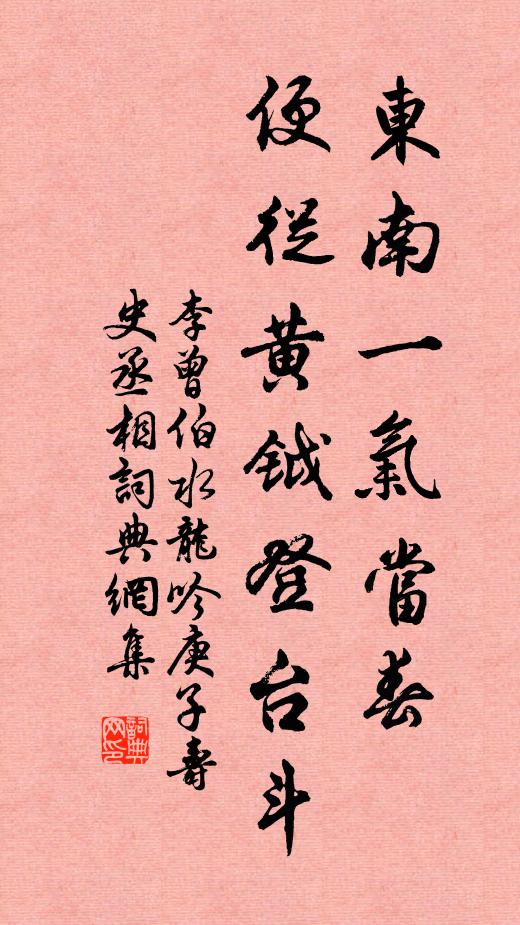 東南一氣當春
便從黃鉞登台斗
李曾伯水龍吟庚子壽
史丞相詞典網集
詞典網印